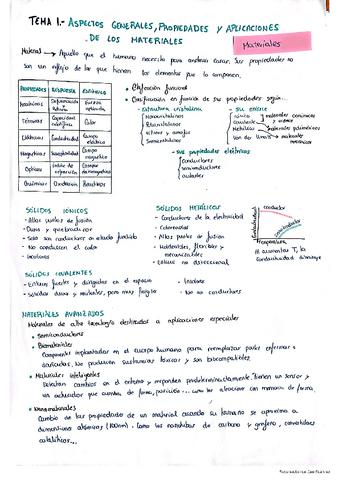 TEMA 1.- ASPECTOS GENERALES, PROPIEDADES Y APLICACIONES
DE LOS MATERIALES
Materiales
Material → Aquello que el humano necesita para construir cosas. Sus propiedades no
son un reflejo de las que tienen los elementos que lo componen.
PROPIEDADES RESPUESTA ESTÍMULO
Mecánicas Deformación rotura Fuerza aplicada
Térmicas Capacidad calorífica Calor
Eléctricas Conductividad Campo eléctrico
Magnéticas Susceptibilidad Campo magnético
Ópticas Índice de refracción Campo
Químicas Reactivos
• Clasificación funcional
• Clasificación en función de sus propiedades según...
- estructura cristalina
Monocristalinos
Policristalinos
Vítreos y amorfos
Semicristalinos
- su enlace
iónico
covalente
Metálicos
Van der Waals
materiales cerámicos
y vítreos
materiales poliméricos
materiales
- sus propiedades eléctricas
conductores
semiconductores
aislantes
SÓLIDOS IÓNICOS
- Altos puntos de fusión
- Duros y quebradizos
- Solo son conductores en estado fundido
- No conducen el calor
- Incoloros
SÓLIDOS METÁLICOS
- Conductores de la electricidad
- Coloreados
- Altos puntos de fusión
- Maleables, flexibles y
mecanizables
- Enlace no direccional
Conductividad
conductor
semiconductor
Temperatura
Al aumentar T, la
Conductividad disminuye
SÓLIDOS COVALENTES
- Enlaces fuertes y dirigidos en el espacio
- Sólidos duros y resistentes, pero muy frágiles
- Incoloros
- No son conductores
MATERIALES AVANZADOS
Materiales de alta tecnología destinados a aplicaciones especiales
• Semiconductores
• Biomateriales
Componentes implantados en el cuerpo humano para reemplazar partes enfermas o
dañadas. No producen sustancias tóxicas y son biocompatibles.
• Materiales inteligentes
Detectan cambios en el entorno y responden predeterminadamente. Tienen un sensor y
un actuador que cambia de forma, posición... como las aleaciones con memoria de forma.
• Nanomateriales
Cambio de las propiedades de un material cuando su tamaño se aproxima a
dimensiones atómicas (100nm). Como los nanotubos de carbono y grafeno, convertidores
catalíticos...